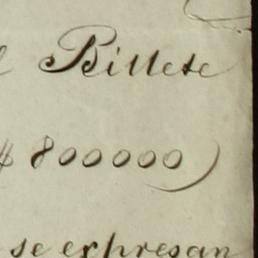 Billete
$ 800000)
se expresan